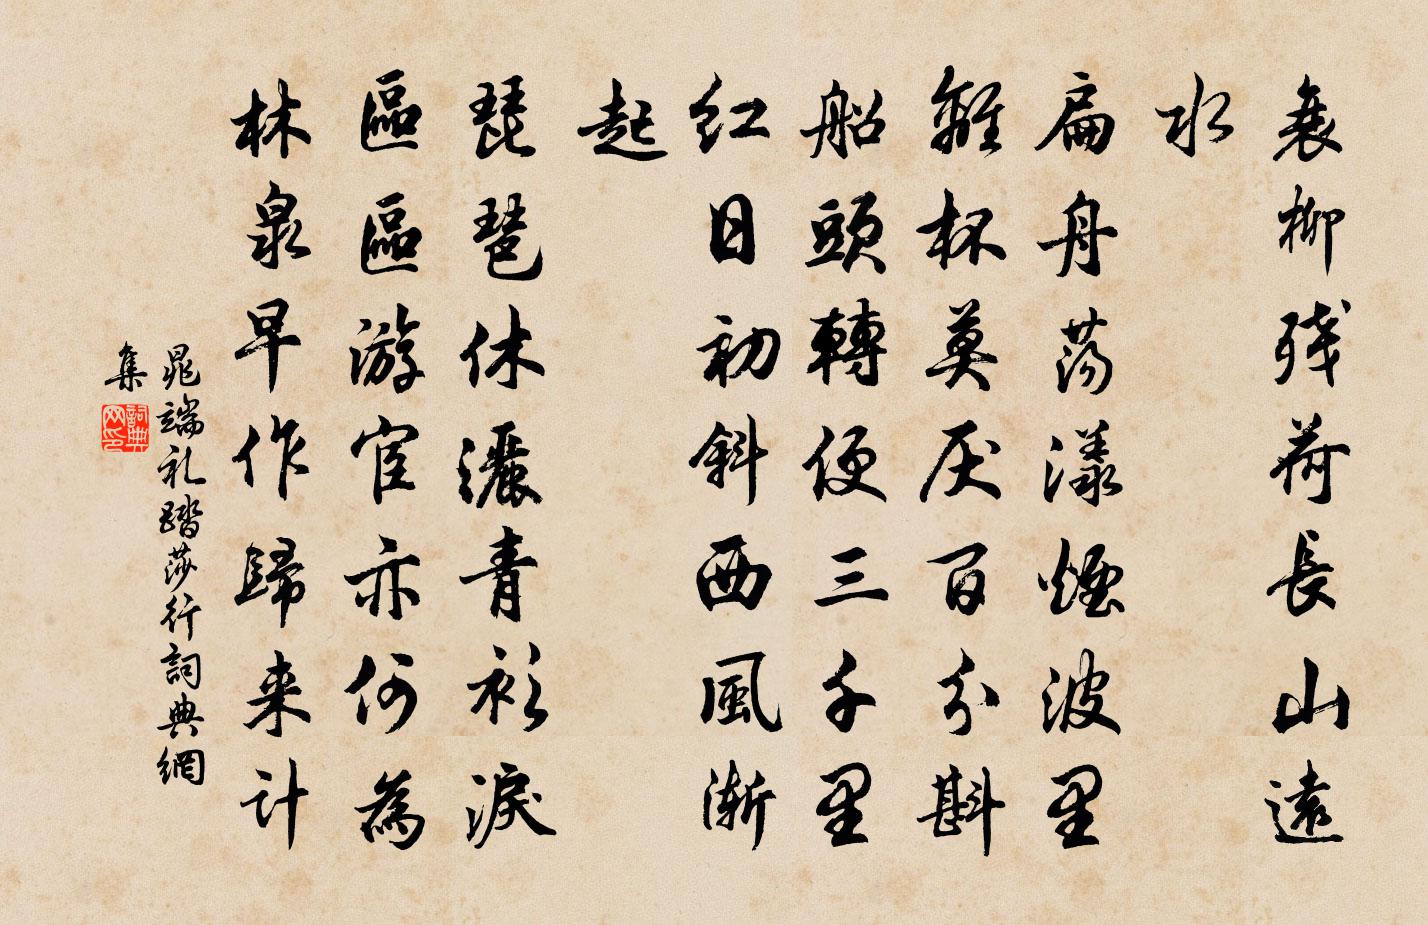 衰柳殘荷長山遠
水
扁舟蕩漾煙波里
離杯莫厌百分斟
船頭轉便三千里
红日初斜西風漸
起
琵琶休灑青衫淚
區區游宦亦何為
林泉早作歸来计
晁端礼踏莎行詞典網
集
詞典网印